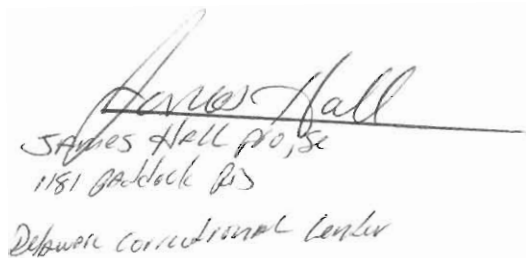 James Hall
James Hall pro,se
1181 Paddock Rd
Delaware correctional Center